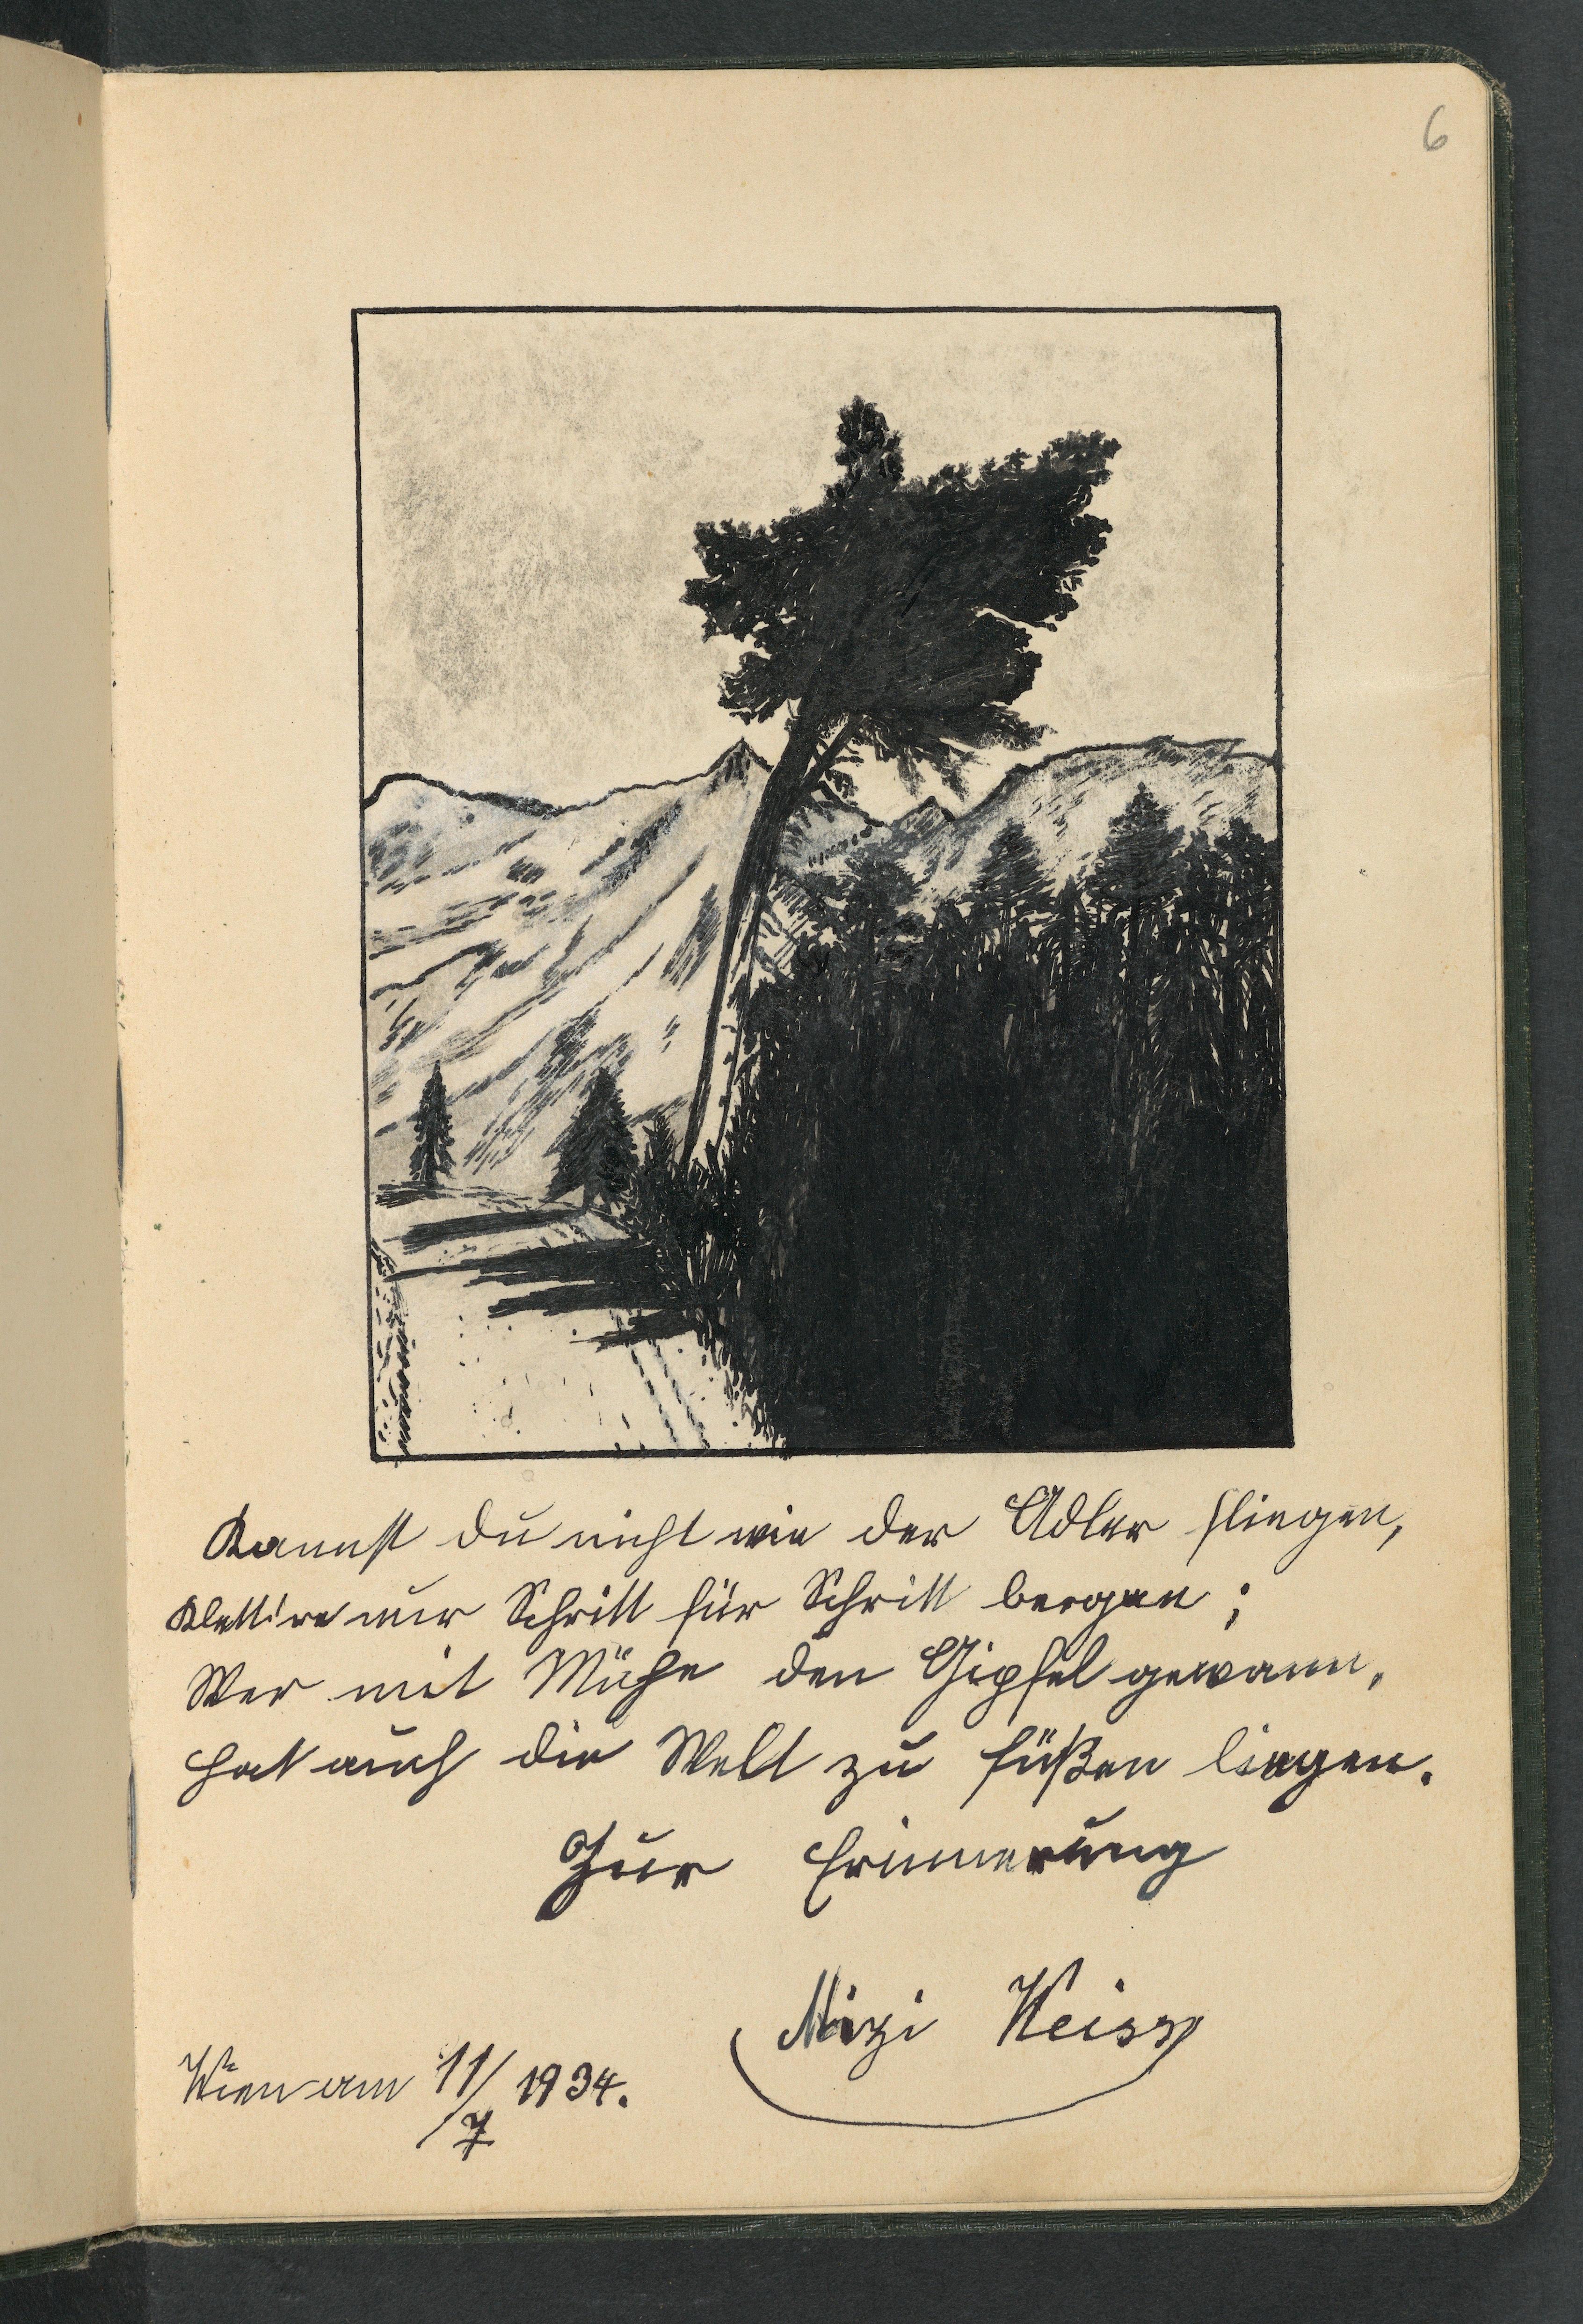 6
Kannst du nicht wie der Adler fliegen,
Klett're nur Schritt für Schritt bergan;
Wer mit Mühe den Gipfel gewann,
hat auch die Welt zu füßen liegen.
Zur Erinnerung
Mizi Weiss
Wien am 11/7 1934.